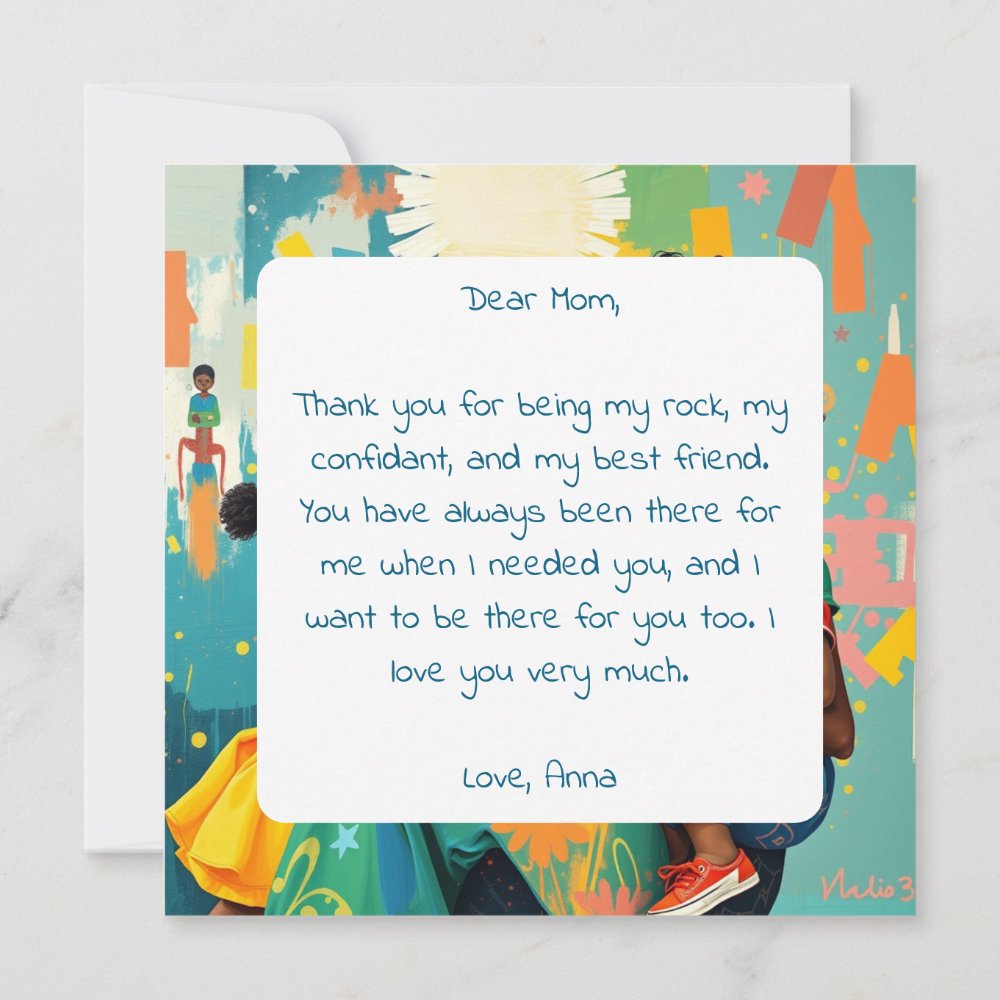 Dear Mom,
Thank you for being my rock, my
confidant, and my best friend.
You have always been there for
me when I needed you, and I
want to be there for you too. I
love you very much.
Love, Anna